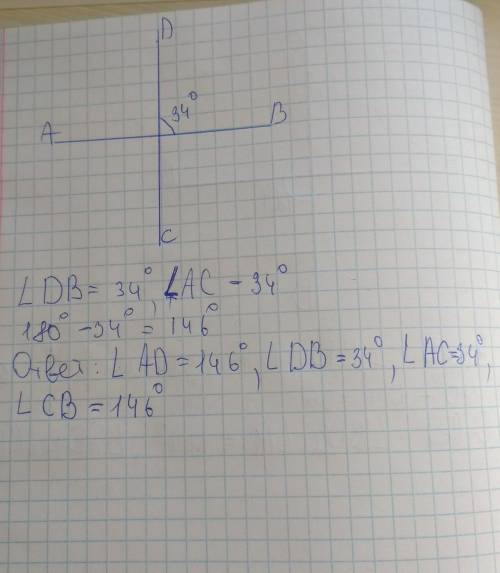 D
34°
A
B
C
∠DB = 34°, ∠AC - 34°
180° - 34° = 146°
Ответ: ∠AD = 146°, ∠DB = 34°, ∠AC = 34°,
∠CB = 146°